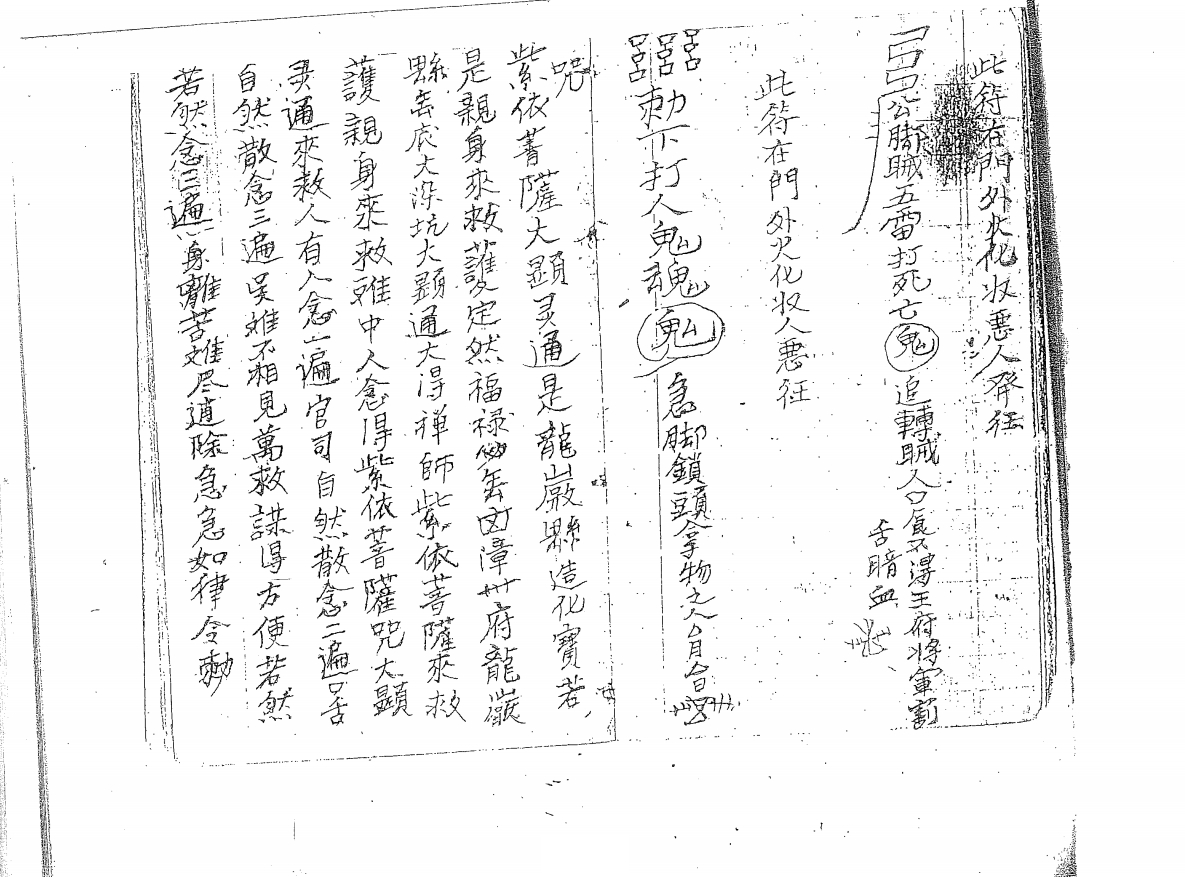 此符在門外火化收惡人發狂
公脚賊五雷打死亡鬼追轉賊人口食不得王府將軍割
舌暗血
此符在門外火化收人惡狂
勅下打人鬼魂鬼急脚鎖頭拿物之人
咒
紫依菩薩大顕灵通是龍巖縣造化寶若
是親身來救護定然福禄漳州府龍巖
縣大深坑大顕通大得禅師紫依菩薩來救
護親身來救难中人念得紫依菩薩咒大顕
灵通來救人有人念一遍官司自然散念二遍口舌
自然散念三遍吴难不相見萬救謀得方便若然
若然念三遍身離苦难尽逍除急急如律令勅